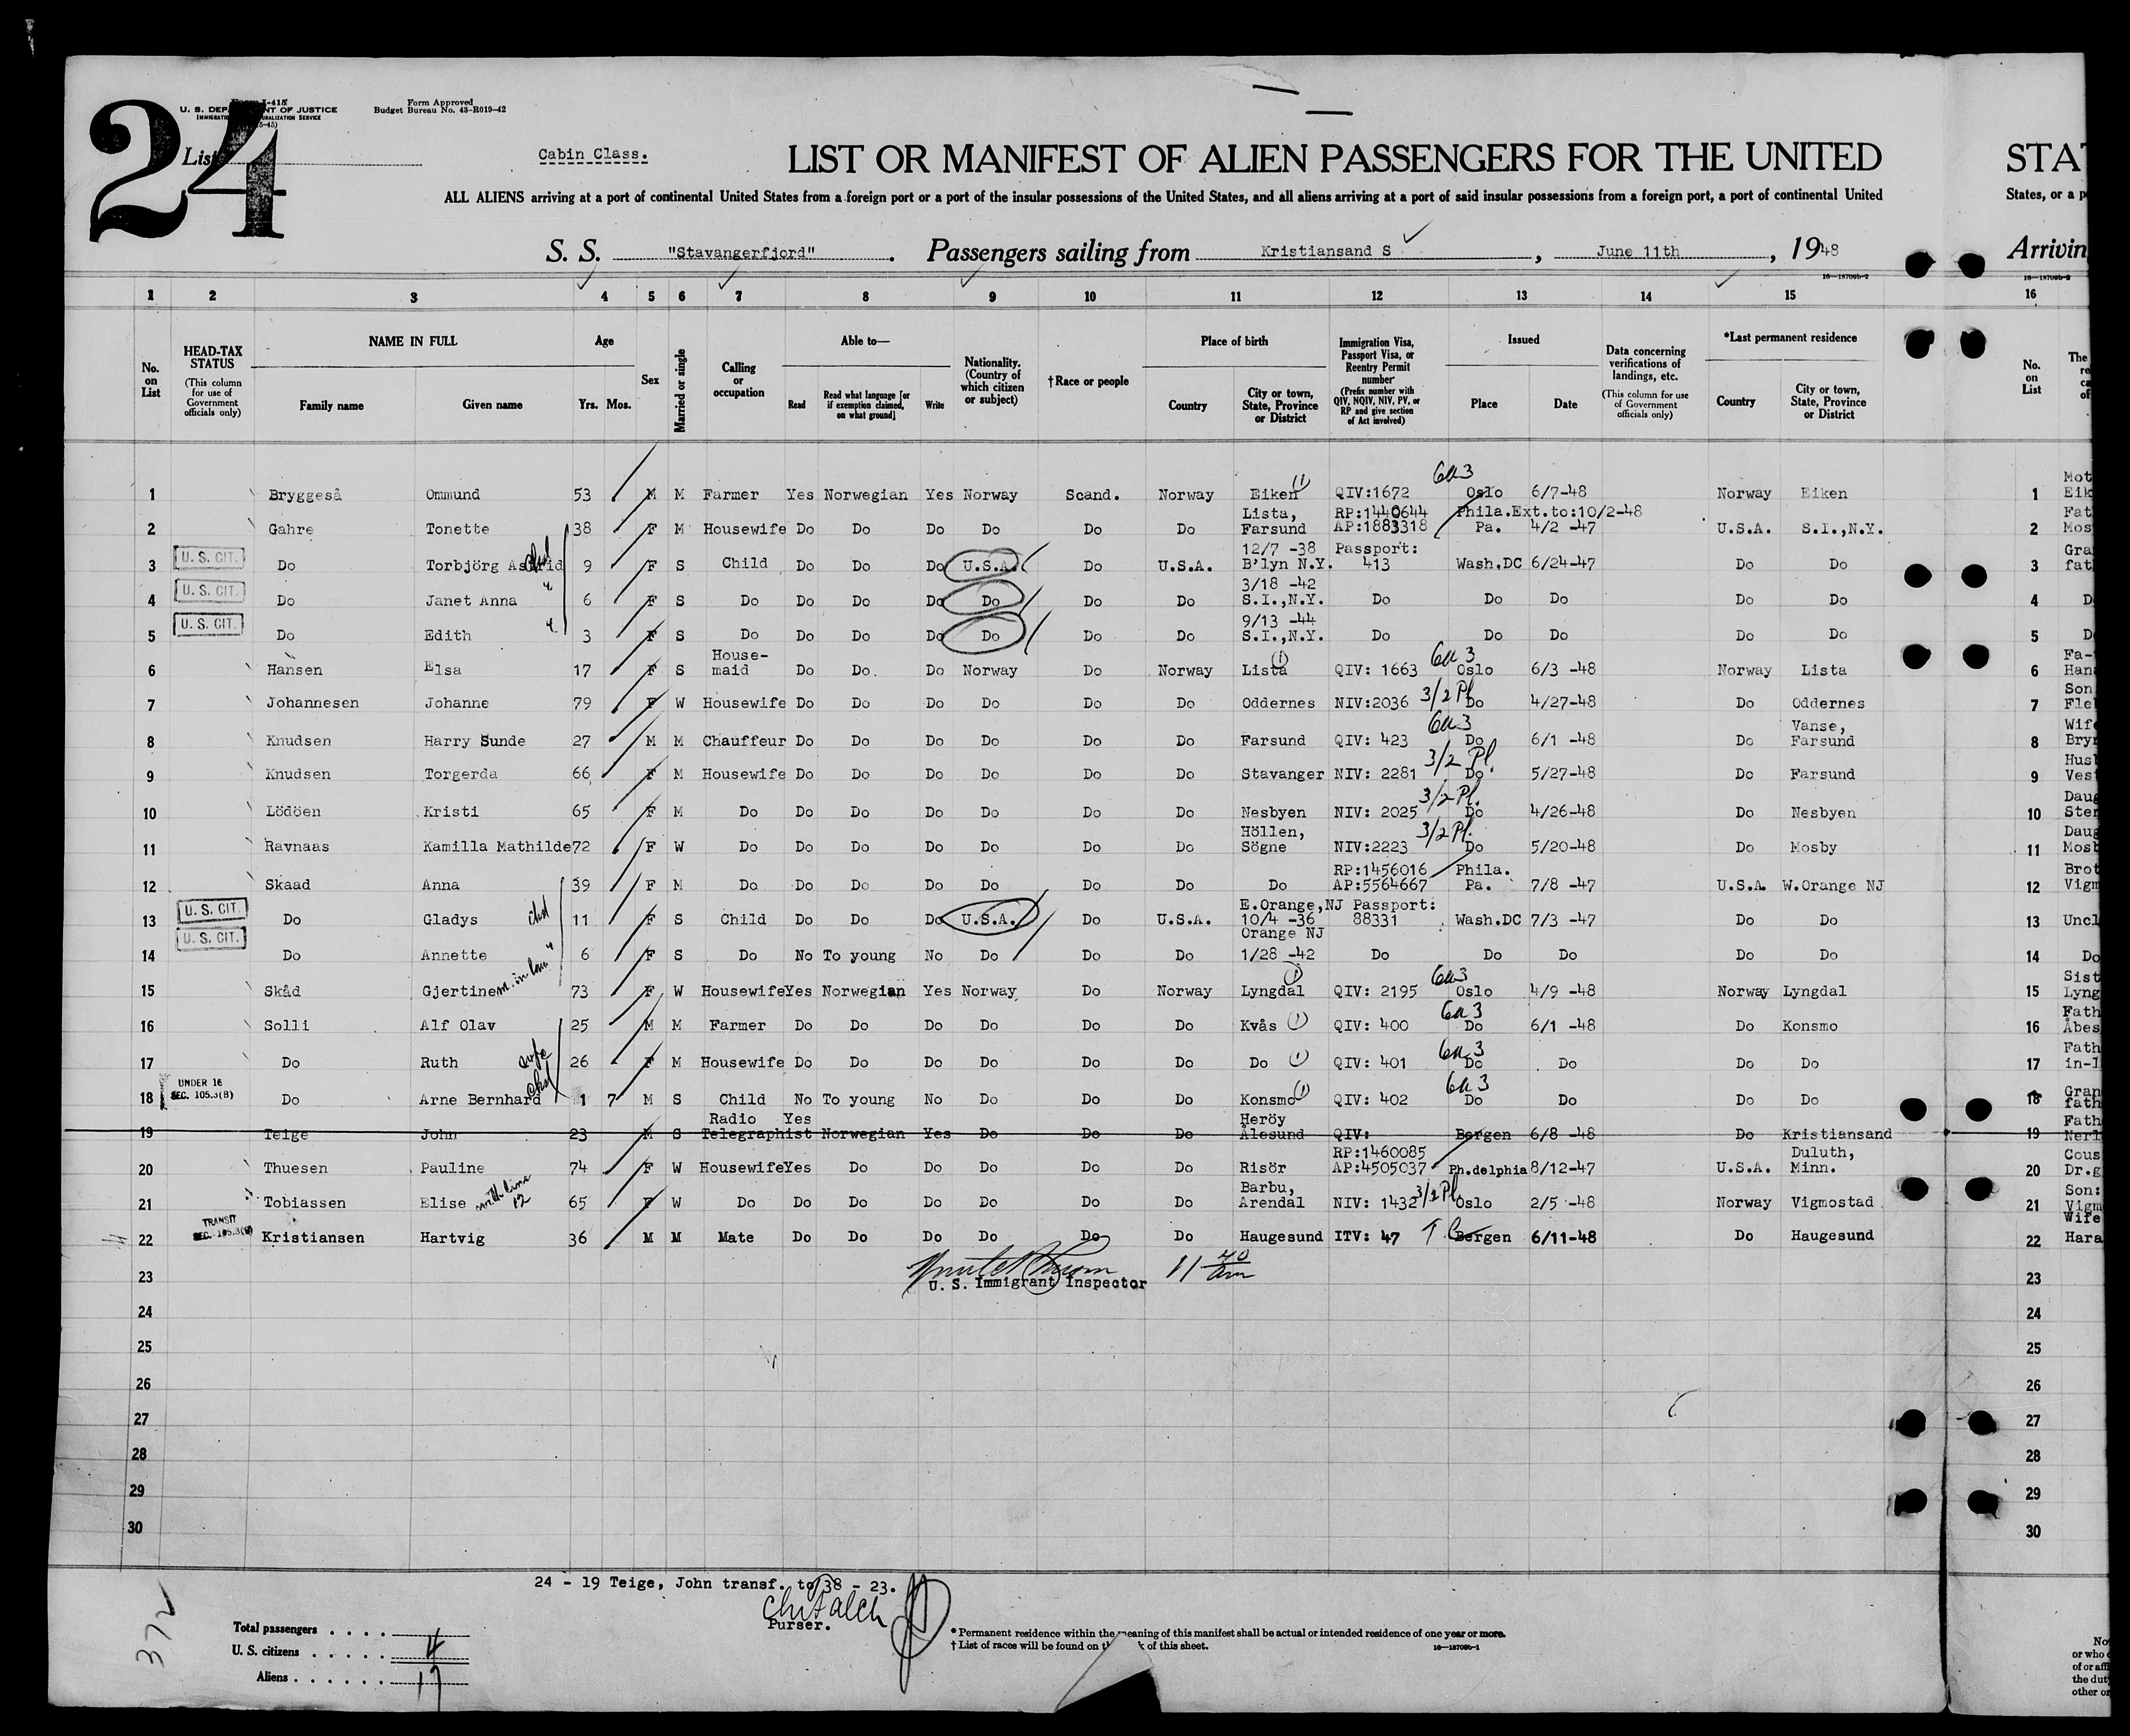 24
Form I-415
U. S. DEPARTMENT OF JUSTICE
Form Approved
Budget Bureau No. 43-R019-42
List
Cabin Class.
LIST OR MANIFEST OF ALIEN PASSENGERS FOR THE UNITED
STAT
ALL ALIENS arriving at a port of continental United States from a foreign port or a port of the insular possessions of the United States, and all aliens arriving at a port of said insular possessions from a foreign port, a port of continental United
States, or a p
S. S. "Stavangerfjord". Passengers sailing from Kristiansand S, June 11th, 1948
Arrivin
16—18709b-2
1 2 3 4 5 6 7 8 9 10 11 12 13 14 15 16
No. on List
HEAD-TAX STATUS (This column for use of Government officials only)
NAME IN FULL
Family name Given name
Age
Yrs. Mos.
Sex
Married or single
Calling or occupation
Able to—
Read Read what language [or if exemption claimed, on what ground] Write
Nationality. (Country of which citizen or subject)
†Race or people
Place of birth
Country City or town, State, Province or District
Immigration Visa, Passport Visa, or Reentry Permit number (Prefix number with QIV, NQIV, NIV, PV, or RP and give section of Act involved)
Issued
Place Date
Data concerning verifications of landings, etc. (This column for use of Government officials only)
*Last permanent residence
Country City or town, State, Province or District
No. on List
1 Bryggeså Ommund 53 M M Farmer Yes Norwegian Yes Norway Scand. Norway Eiken QIV:1672 Oslo 6/7-48 Norway Eiken 1 Mot Eik
2 Gahre Tonette 38 F M Housewife Do Do Do Do Do Do Lista, Farsund RP:1440644 AP:1883318 Phila.Ext.to:10/2-48 Pa. 4/2 -47 U.S.A. S.I.,N.Y. 2 Fat Mos
3 U. S. CIT. Do Torbjörg Astrid 9 F S Child Do Do Do U.S.A. Do U.S.A. 12/7 -38 B'lyn N.Y. Passport: 413 Wash.DC 6/24-47 Do Do 3 Gra fat
4 U. S. CIT. Do Janet Anna 6 F S Do Do Do Do Do Do Do 3/18 -42 S.I.,N.Y. Do Do Do Do Do 4 D
5 U. S. CIT. Do Edith 3 F S Do Do Do Do Do Do Do 9/13 -44 S.I.,N.Y. Do Do Do Do Do 5 D
6 Hansen Elsa 17 F S House-maid Do Do Do Norway Do Norway Lista QIV: 1663 Oslo 6/3 -48 Norway Lista 6 Fa- Han
7 Johannesen Johanne 79 F W Housewife Do Do Do Do Do Do Oddernes NIV:2036 3/2 Pl Do 4/27-48 Do Oddernes 7 Son Fle
8 Knudsen Harry Sunde 27 M M Chauffeur Do Do Do Do Do Do Farsund QIV: 423 Do 6/1 -48 Do Vanse, Farsund 8 Wif Bry
9 Knudsen Torgerda 66 F M Housewife Do Do Do Do Do Do Stavanger NIV: 2281 3/2 Pl. Do 5/27-48 Do Farsund 9 Hus Ves
10 Lödöen Kristi 65 F M Do Do Do Do Do Do Do Nesbyen NIV: 2025 3/2 Pl. Do 4/26-48 Do Nesbyen 10 Daug Ster
11 Ravnaas Kamilla Mathilde 72 F W Do Do Do Do Do Do Do Höllen, Sögne NIV:2223 3/2 Pl. Do 5/20-48 Do Mosby 11 Daug Mosb
12 Skaad Anna 39 F M Do Do Do Do Do Do Do Do RP:1456016 AP:5564667 Phila. Pa. 7/8 -47 U.S.A. W.Orange NJ 12 Brot Vigm
13 U. S. CIT. Do Gladys 11 F S Child Do Do Do U.S.A. Do U.S.A. E.Orange,NJ 10/4 -36 Passport: 88331 Wash.DC 7/3 -47 Do Do 13 Uncl
14 U. S. CIT. Do Annette 6 F S Do No To young No Do Do Do Orange NJ 1/28 -42 Do Do Do Do Do 14 Do
15 Skåd Gjertine m. in law 73 F W Housewife Yes Norwegian Yes Norway Do Norway Lyngdal QIV: 2195 Oslo 4/9 -48 Norway Lyngdal 15 Sist Lyng
16 Solli Alf Olav 25 M M Farmer Do Do Do Do Do Do Kvås QIV: 400 Do 6/1 -48 Do Konsmo 16 Fath Åbes
17 Do Ruth wife 26 F M Housewife Do Do Do Do Do Do Do QIV: 401 Do Do Do Do 17 Fath in-l
18 UNDER 16 SEC. 105.3(B) Do Arne Bernhard 1 7 M S Child No To young No Do Do Do Konsmo QIV: 402 Do Do Do Do 18 Gran fath
19 Teige John 23 M S Radio Telegraphist Yes Norwegian Yes Do Do Do Heröy Ålesund QIV: Bergen 6/8 -48 Do Kristiansand 19 Fath Nerl
20 Thuesen Pauline 74 F W Housewife Yes Do Do Do Do Do Risör RP:1460085 AP:4505037 Ph.delphia 8/12-47 U.S.A. Duluth, Minn. 20 Cous Dr.g
21 Tobiassen Elise with line 12 65 F W Do Do Do Do Do Do Do Barbu, Arendal NIV: 1432 3/2 Pl. Oslo 2/5 -48 Norway Vigmostad 21 Son: Vigm
22 TRANSIT Kristiansen Hartvig 36 M M Mate Do Do Do Do Do Do Haugesund ITV: 47 Bergen 6/11-48 Do Haugesund 22 Wife Hara
U. S. Immigrant Inspector 11 40 am
23 23
24 24
25 25
26 26
27 27
28 28
29 29
30 30
24 - 19 Teige, John transf. to 38 - 23.
Purser.
Total passengers
U. S. citizens 4
Aliens 17
372
* Permanent residence within the meaning of this manifest shall be actual or intended residence of one year or more.
† List of races will be found on the back of this sheet.
16—18709b-1
No
or who
of or aff
the dut
other or